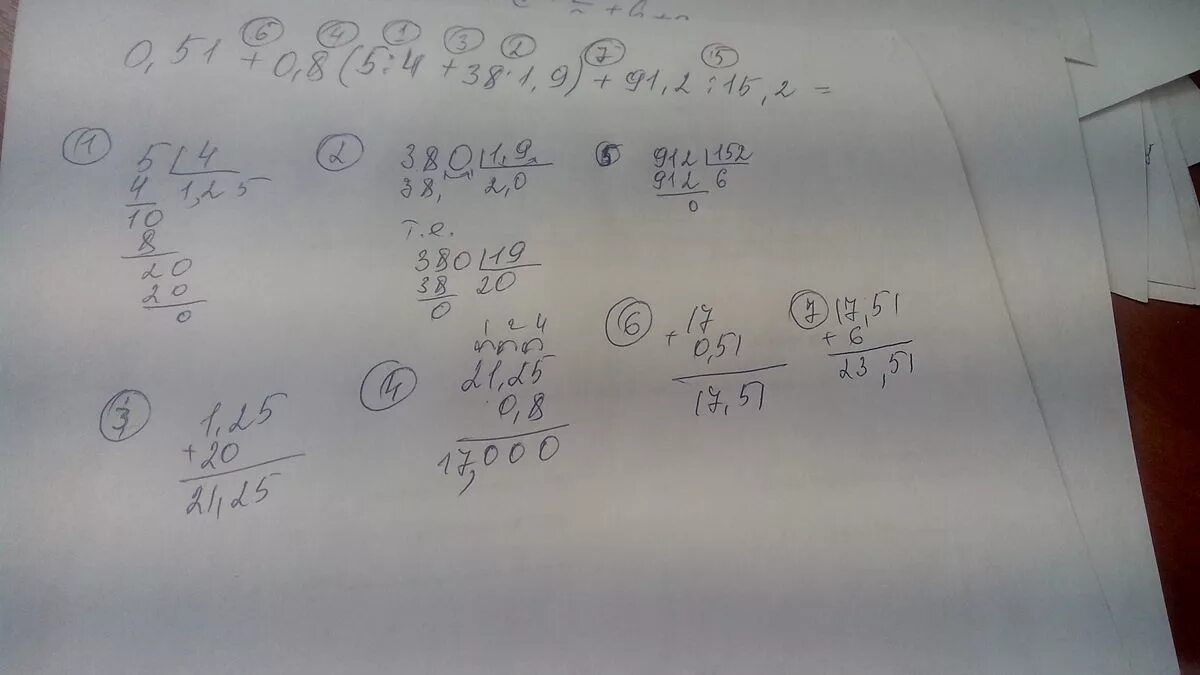 6 4 1 3 2 7 5
0,51 + 0,8 (5:4 + 38:1,9) + 91,2 : 15,2 =
1
5 4
4 1,25
10
8
20
20
0
2
380 1,9
38, 2,0
т.е.
380 19
38 20
0
5
912 152
912 6
0
3
1,25
+20
21,25
4
1 2 4
21,25
0,8
17,000
6
17
+ 0,51
17,51
7
17,51
+ 6
23,51